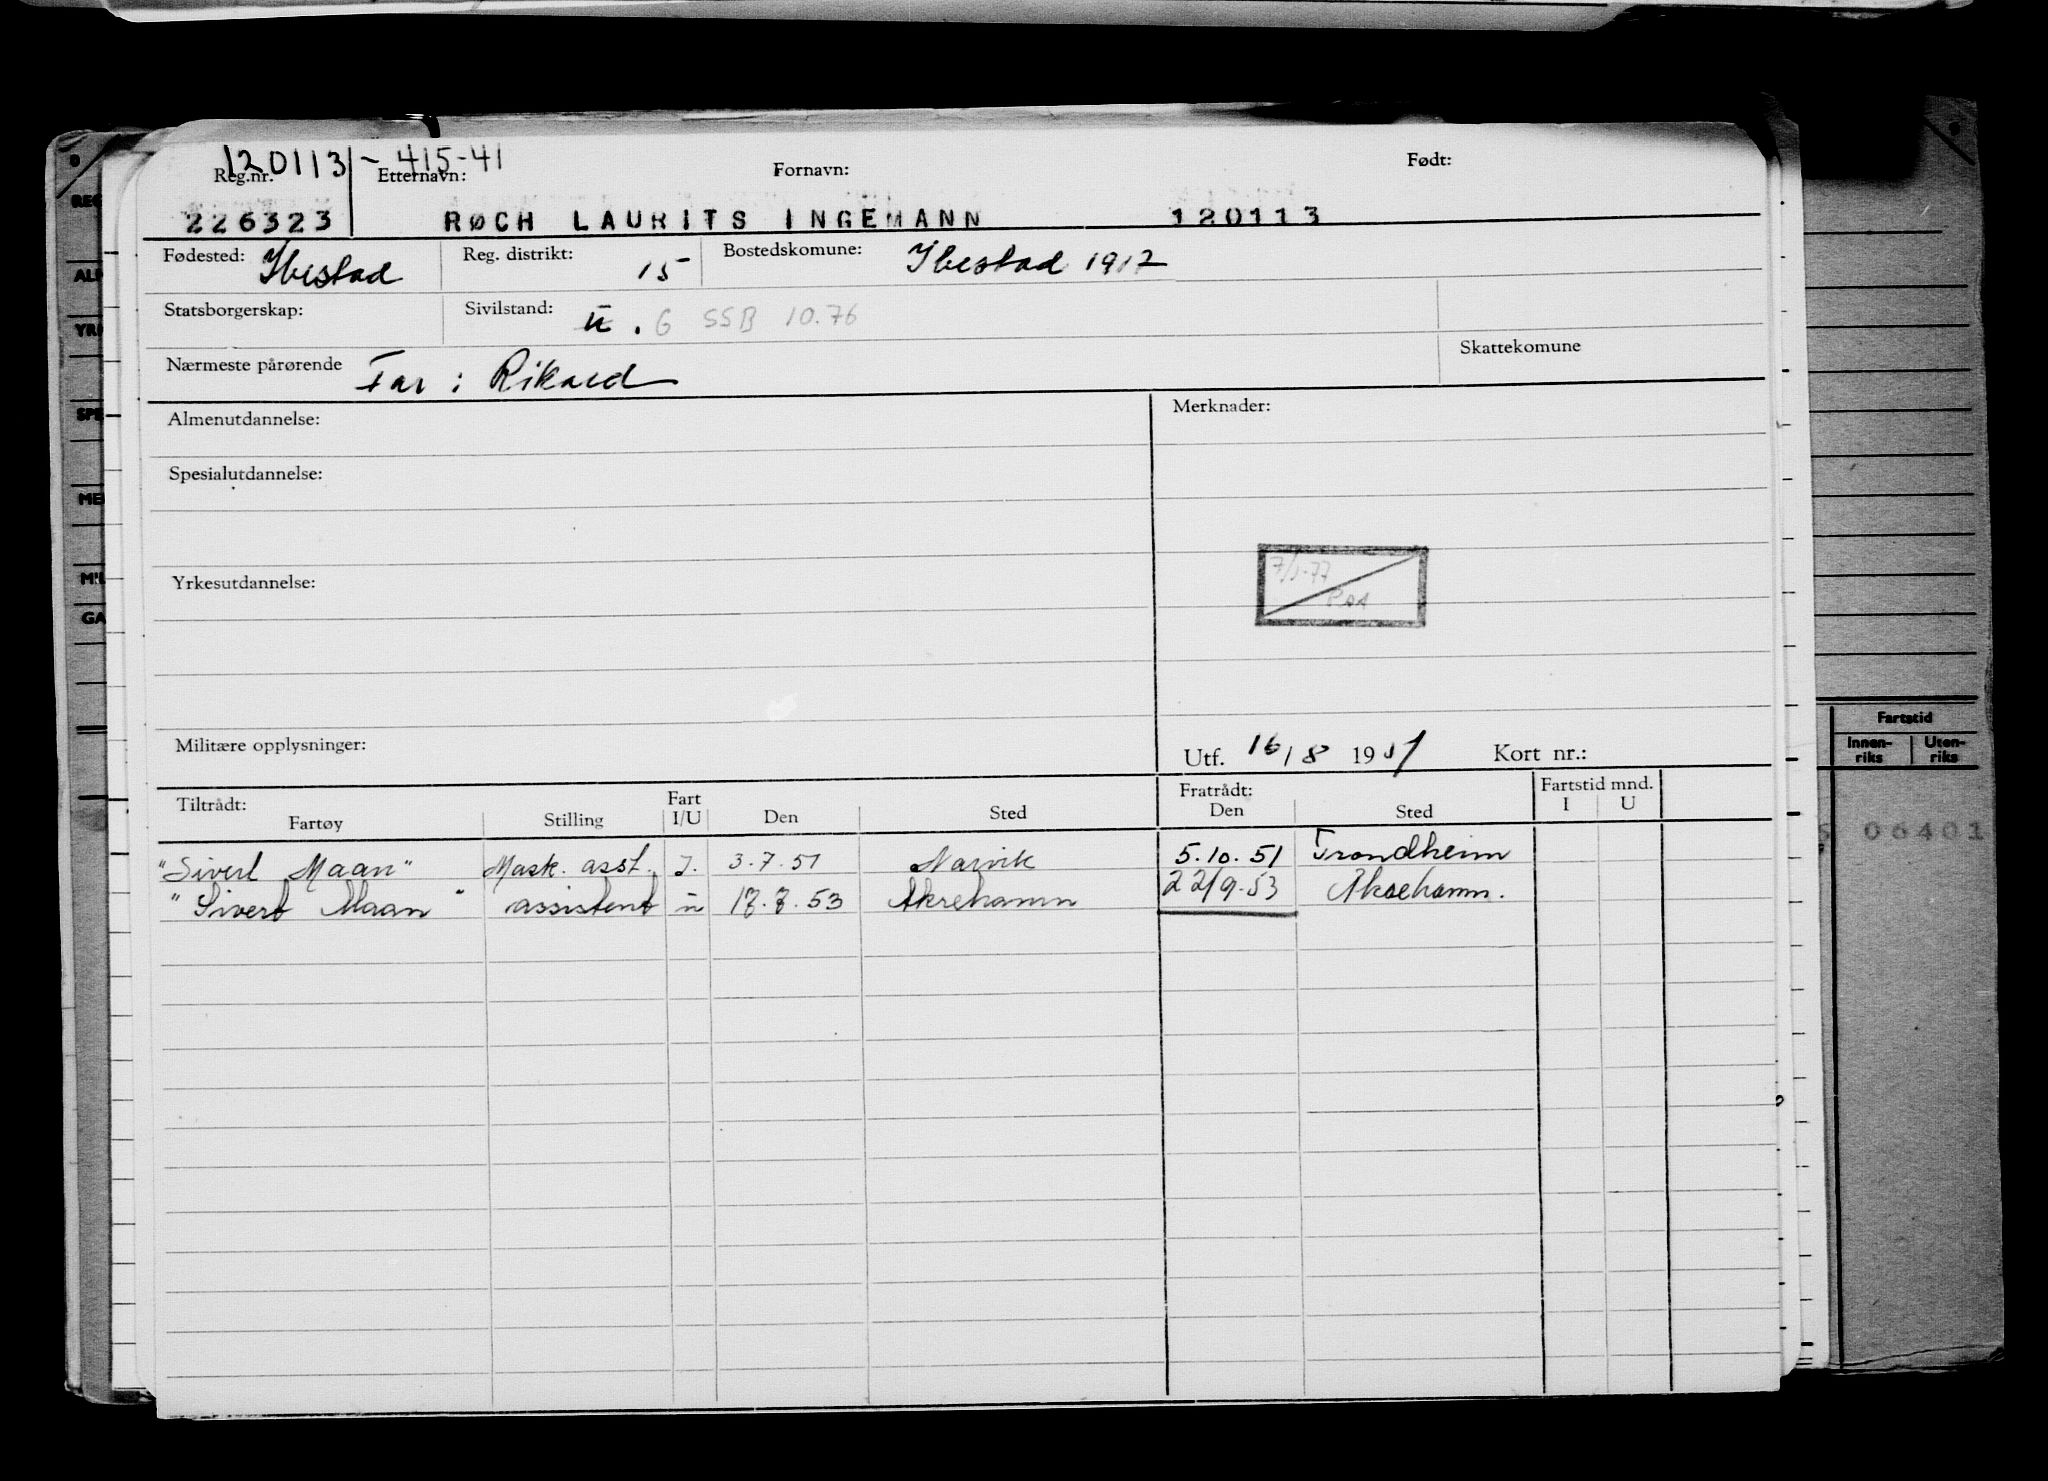 120113 - 415-41
Reg.nr. Etternavn: Fornavn: Født:
226323 RØCH LAURITS INGEMANN 120113
Fødested: Ibestad Reg. distrikt: 15 Bostedskomune: Ibestad 1917
Statsborgerskap: Sivilstand: u . G SSB 10.76
Nærmeste pårørende Far : Rikard Skattekomune
Almenutdannelse: Merknader:
Spesialutdannelse:
7/1-77
Yrkesutdannelse:
Militære opplysninger: Utf. 16/8 1951 Kort nr.:
Tiltrådt: Fart Fratrådt: Fartstid mnd.
Fartøy Stilling I/U Den Sted Den Sted I U
"Sivert Maan" Mask. asst. I. 3.7.51 Narvik 5.10.51 Trondheim
"Sivert Maan" assistent u 17.7.53 Akrehamn 22/9.53 Akrehamn.
REG
ALM
YRK
SPE
ME
MIL
GA
Fartstid
Innen-riks Uten-riks
06401